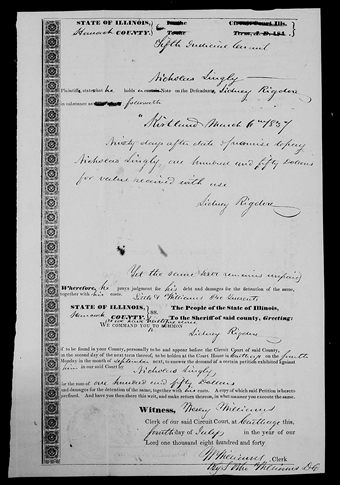 STATE OF ILLINOIS,
Hancock COUNTY.
Fifth Judicial Circuit
Nicholas Lingly
Plaintiff, states that he holds Note on the Defendant, Sidney Rigdon
in substance as followeth
"Kirtland March 6th 1837
Ninety days after date I promise to pay
Nicholas Lingly, one hundred and fifty Dollars
for value received with use
Sidney Rigdon
Yet the same remains unpaid
Wherefore, he prays judgment for his debt and damages for the detention of the same,
together with his costs.
STATE OF ILLINOIS, The People of the State of Illinois,
Hancock COUNTY. ss. To the Sheriff of said county, Greeting:
WE COMMAND YOU TO SUMMON
Sidney Rigdon
if to be found in your County, personally to be and appear before the Circuit Court of said County,
on the second day of the next term thereof, to be holden at the Court House in Carthage on the fourth
Monday in the month of September next, to answer the demand of a certain petition exhibited against
him in our said Court by
Nicholas Lingly
for the sum of one hundred and fifty Dollars
and damages for the detention of the same, together with his costs. A copy of which Petition is herewith
affixed. And have you then there this writ, and make return thereon, in what manner you execute the same.
Witness, Wesley Williams
Clerk of our said Circuit Court, at Carthage this
fourth day of July in the year of our
Lord one thousand eight hundred and forty
W Williams Clerk
Williams DC